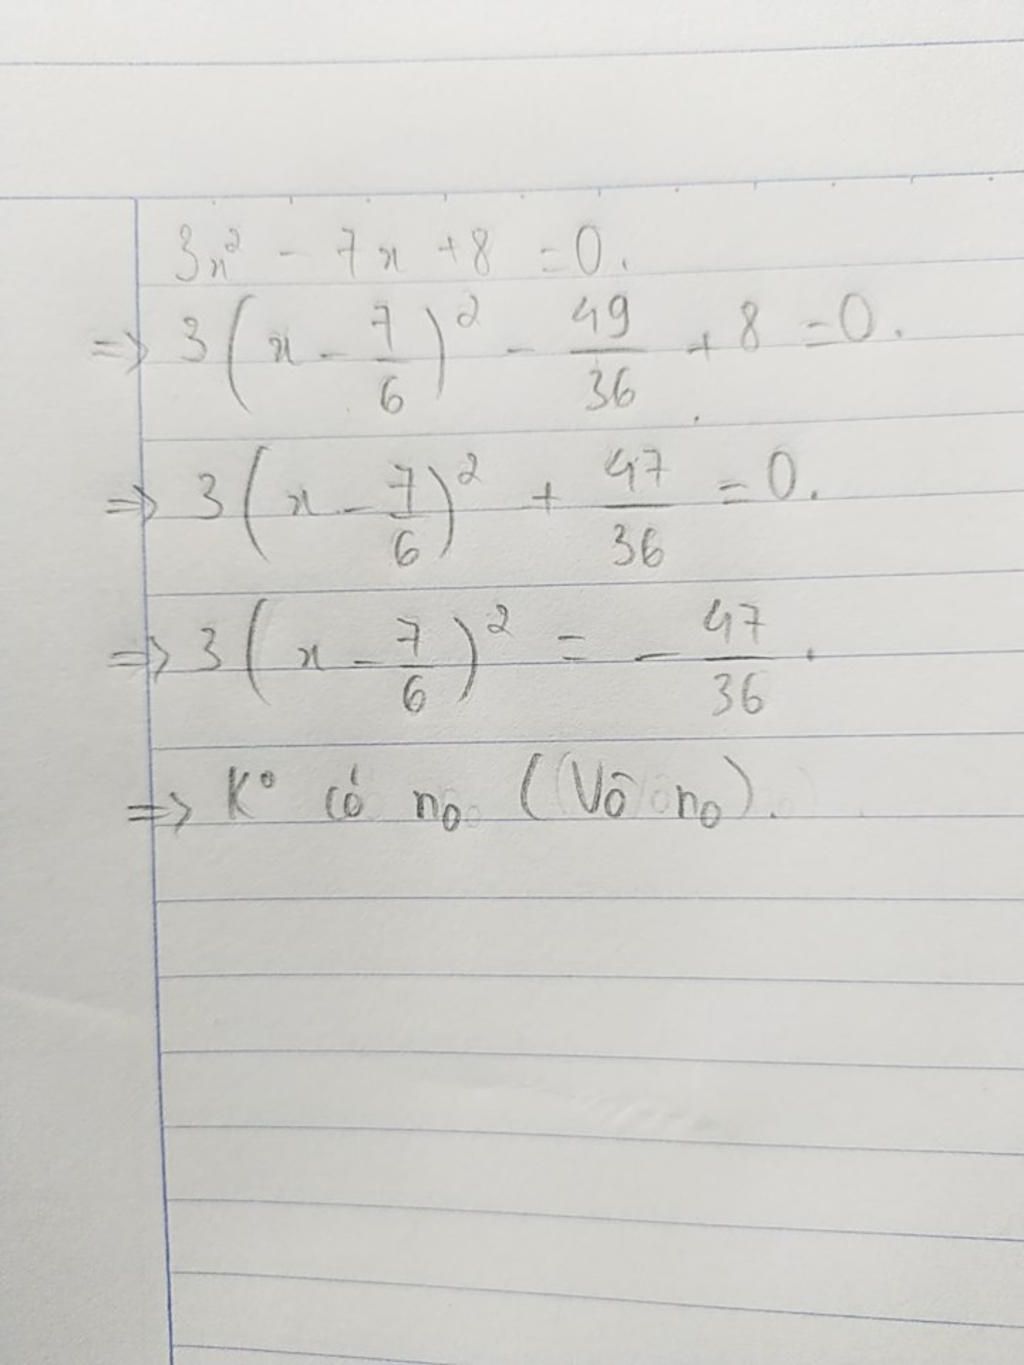 3x² - 7x + 8 = 0.
=> 3(x - 7/6)² - 49/36 + 8 = 0.
=> 3(x - 7/6)² + 47/36 = 0.
=> 3(x - 7/6)² = - 47/36.
=> K° có n₀ (Vô n₀).